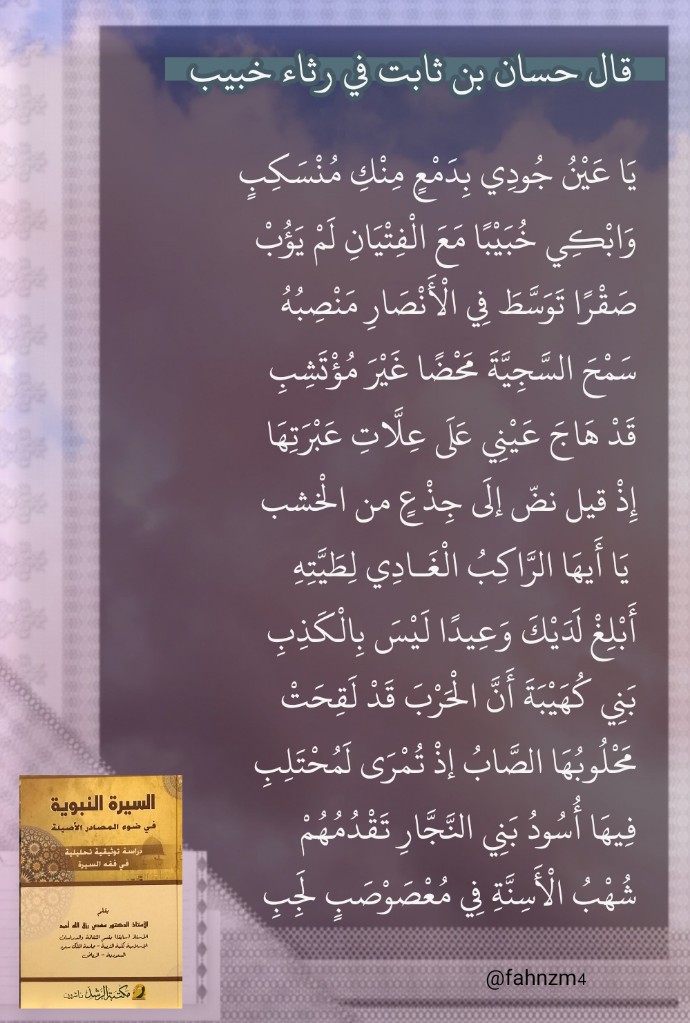 قال حسان بن ثابت في رثاء خبيب
يَا عَيْنُ جُودِي بِدَمْعٍ مِنْكِ مُنْسَكِبٍ
وَابْكِي خُبَيْبًا مَعَ الْفِتْيَانِ لَمْ يَؤُبْ
صَقْرًا تَوَسَّطَ فِي الْأَنْصَارِ مَنْصِبُهُ
سَمْحَ السَّجِيَّةَ مَحْضًا غَيْرَ مُؤْتَشِبِ
قَدْ هَاجَ عَيْنِي عَلَى عِلَّاتِ عَبْرَتِهَا
إِذْ قيل نصّ إلَى جِذْعٍ من الْخشب
يَا أَيهَا الرَّاكِبُ الْغَــادِي لِطَيَّتِهِ
أَبْلِغْ لَدَيْكَ وَعِيدًا لَيْسَ بِالْكَذِبِ
بَنِي كُهَيْبَةَ أَنَّ الْحَرْبَ قَدْ لَقِحَتْ
مَحْلُوبُهَا الصَّابُ إذْ تُمْرَى لَمُحْتَلِبِ
فِيهَا أُسُودُ بَنِي النَّجَّارِ تَقْدُمُهُمْ
شُهْبُ الْأَسِنَّةِ فِي مُعْصَوْصَبٍ لَجِبِ
السيرة النبوية
في ضوء المصادر الأصيلة
دراسة توثيقية تحليلية
في فقه السيرة
الأستاذ الدكتور مهدي رزق الله أحمد
مكتبة الرشد ناشرون
@fahnzm4